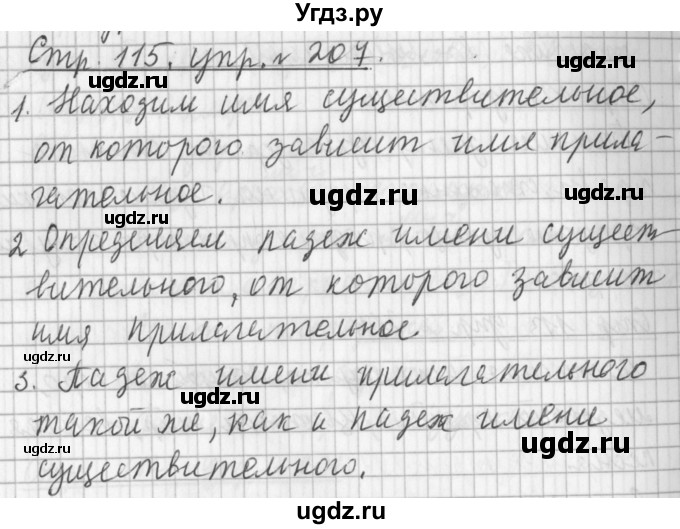 Угдз.ру
Стр. 115. упр. № 207.
ugdz.ru ugdz.ru
1. Находим имя существительное,
ugdz.ru ugdz.ru
от которого зависит имя прила-
гательное.
ugdz.ru ugdz.ru ugdz.ru
2 Определяем падеж имени сущест-
вительного, от которого зависит
ugdz.ru ugdz.ru
имя прилагательное
ugdz.ru ugdz.ru
3. Падеж имени прилагательного
ugdz.ru
такой же, как и падеж имени
ugdz.ru ugdz.ru
существительного.
ugdz.ru
ugdz.ru